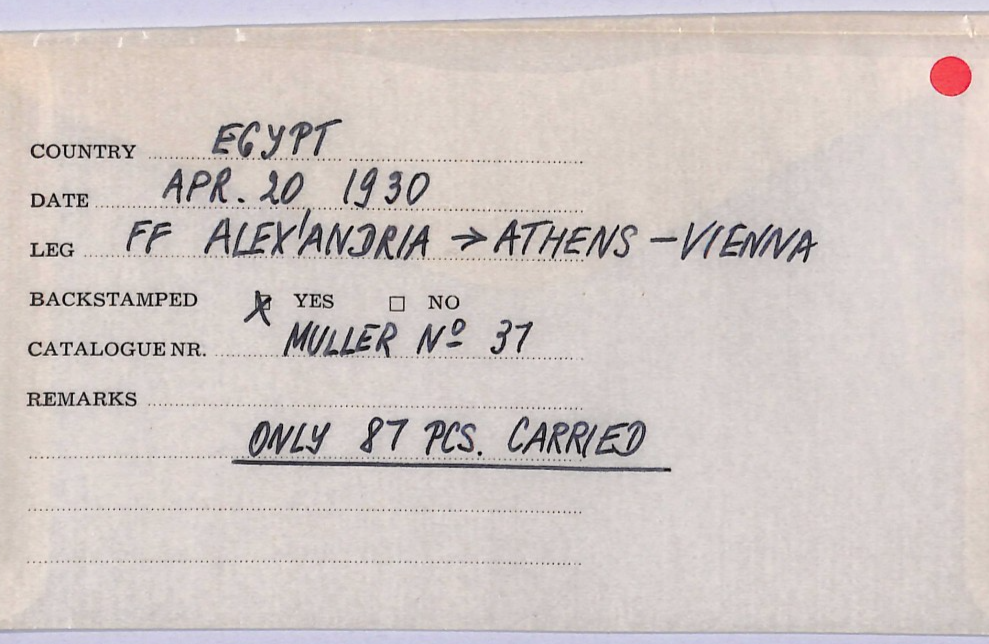 COUNTRY EGYPT
DATE APR. 20, 1930
LEG FF ALEX'ANDRIA → ATHENS – VIENNA
BACKSTAMPED ☒ YES ☐ NO
CATALOGUE NR. MULLER Nº 37
REMARKS
ONLY 87 PCS. CARRIED